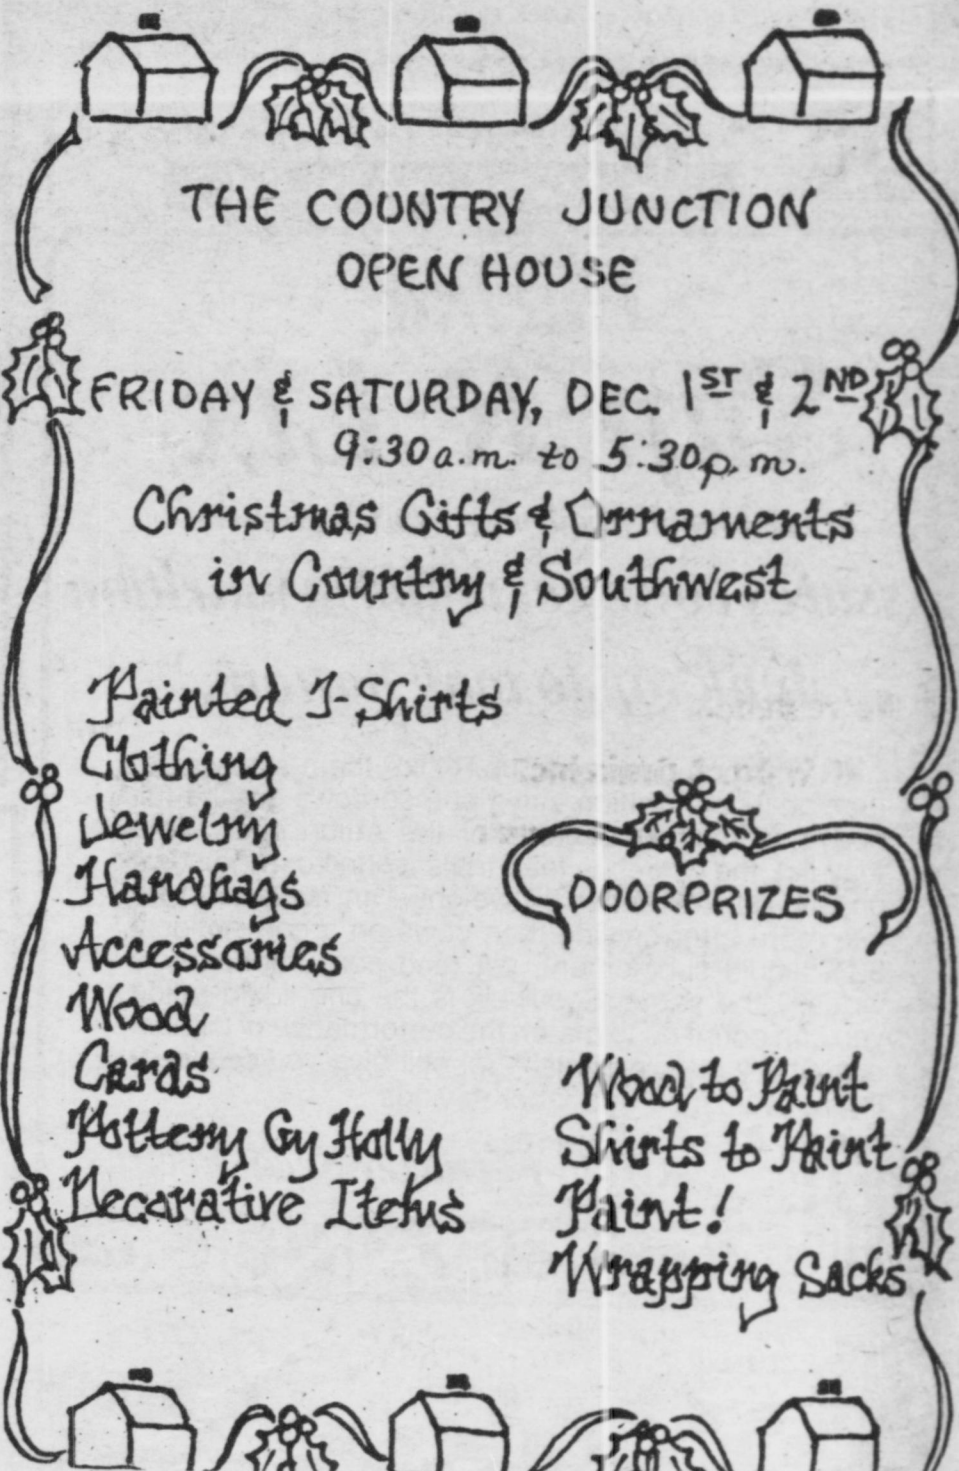 THE COUNTRY JUNCTION
OPEN HOUSE
FRIDAY & SATURDAY, DEC. 1ST & 2ND
9:30 a.m. to 5:30 p.m.
Christmas Gifts & Ornaments
in Country & Southwest
Painted T-Shirts
Clothing
Jewelry
Handbags
Accessories
Wood
Cards
Pottery By Holly
Decorative Items
DOORPRIZES
Wood to Paint
Shirts to Paint
Paint!
Wrapping Sacks